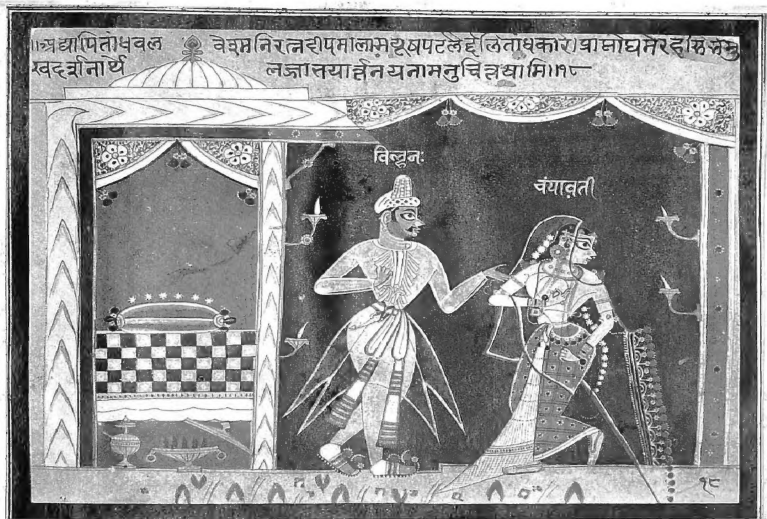 ॥अद्यापितांधवल वेश्मनिरत्नदीपमालामयूषपटलैर्दलितांधकारे।प्राप्तोद्यमेरहसिसंमु
खदर्शनार्थ लज्जाभयार्त्तनयनामनुचिंतयामि॥१८
बिल्हनः
चंपावती
१८